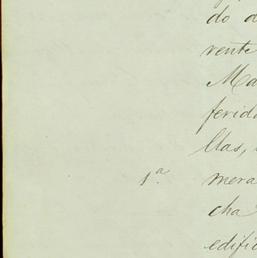 do d
vente
Ma
ferid
llas,
1ª. mera
cha
edific